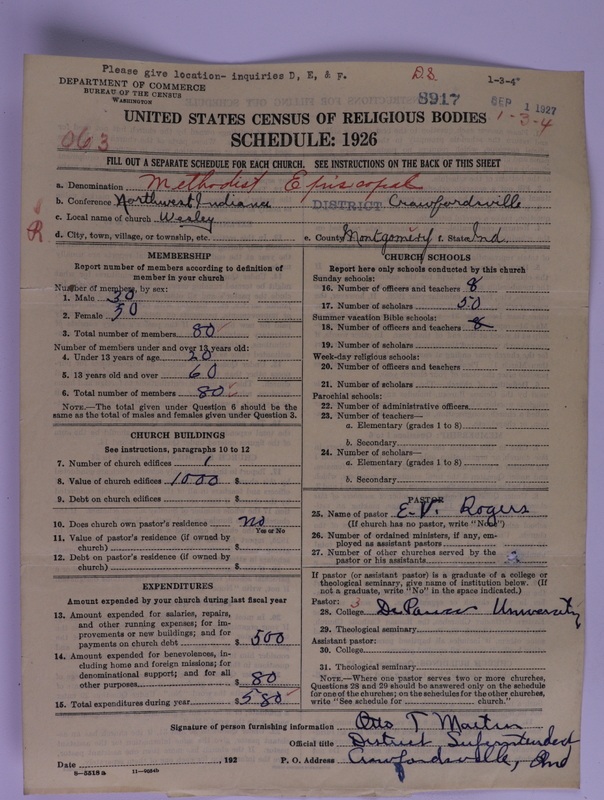 Please give location- inquiries D, E, & F.
D.S.
1-3-4
DEPARTMENT OF COMMERCE
BUREAU OF THE CENSUS
WASHINGTON
8917
SEP 1 1927
1-3-4
UNITED STATES CENSUS OF RELIGIOUS BODIES
063
SCHEDULE: 1926
FILL OUT A SEPARATE SCHEDULE FOR EACH CHURCH. SEE INSTRUCTIONS ON THE BACK OF THIS SHEET
a. Denomination Methodist Episcopal
b. Conference Northwest Indiana DISTRICT Crawfordsville
c. Local name of church Wesley
R
d. City, town, village, or township, etc.
e. County Montgomery f. State Ind.
MEMBERSHIP
Report number of members according to definition of member in your church
Number of members, by sex:
1. Male 30
2. Female 50
3. Total number of members 80
Number of members under and over 13 years old:
4. Under 13 years of age 20
5. 13 years old and over 60
6. Total number of members 80
NOTE.—The total given under Question 6 should be the
same as the total of males and females given under Question 3.
CHURCH BUILDINGS
See instructions, paragraphs 10 to 12
7. Number of church edifices 1
8. Value of church edifices 1000 $
9. Debt on church edifices $
10. Does church own pastor's residence no
Yes or No
11. Value of pastor's residence (if owned by
church) $
12. Debt on pastor's residence (if owned by
church) $
EXPENDITURES
Amount expended by your church during last fiscal year
13. Amount expended for salaries, repairs,
and other running expenses; for im-
provements or new buildings; and for
payments on church debt $ 500
14. Amount expended for benevolences, in-
cluding home and foreign missions; for
denominational support; and for all
other purposes $ 80
15. Total expenditures during year $ 580
CHURCH SCHOOLS
Report here only schools conducted by this church
Sunday schools:
16. Number of officers and teachers 8
17. Number of scholars 50
Summer vacation Bible schools:
18. Number of officers and teachers 8
19. Number of scholars
Week-day religious schools:
20. Number of officers and teachers
21. Number of scholars
Parochial schools:
22. Number of administrative officers
23. Number of teachers—
a. Elementary (grades 1 to 8)
b. Secondary
24. Number of scholars—
a. Elementary (grades 1 to 8)
b. Secondary
PASTOR
25. Name of pastor E. V. Rogers
(If church has no pastor, write "None")
26. Number of ordained ministers, if any, em-
ployed as assistant pastors
27. Number of other churches served by the
pastor or his assistants 2
If pastor (or assistant pastor) is a graduate of a college or
theological seminary, give name of institution below. (If
not a graduate, write "No" in the space indicated.)
Pastor: 3
28. College DePauw University
29. Theological seminary
Assistant pastor:
30. College
31. Theological seminary
NOTE.—Where one pastor serves two or more churches,
Questions 28 and 29 should be answered only on the schedule
for one of the churches; on the schedules for the other churches,
write "See schedule for church."
Signature of person furnishing information Otto T Martin
Official title District Superintendent
Date , 192 P. O. Address Crawfordsville, Ind
8-5518a 11-9084b